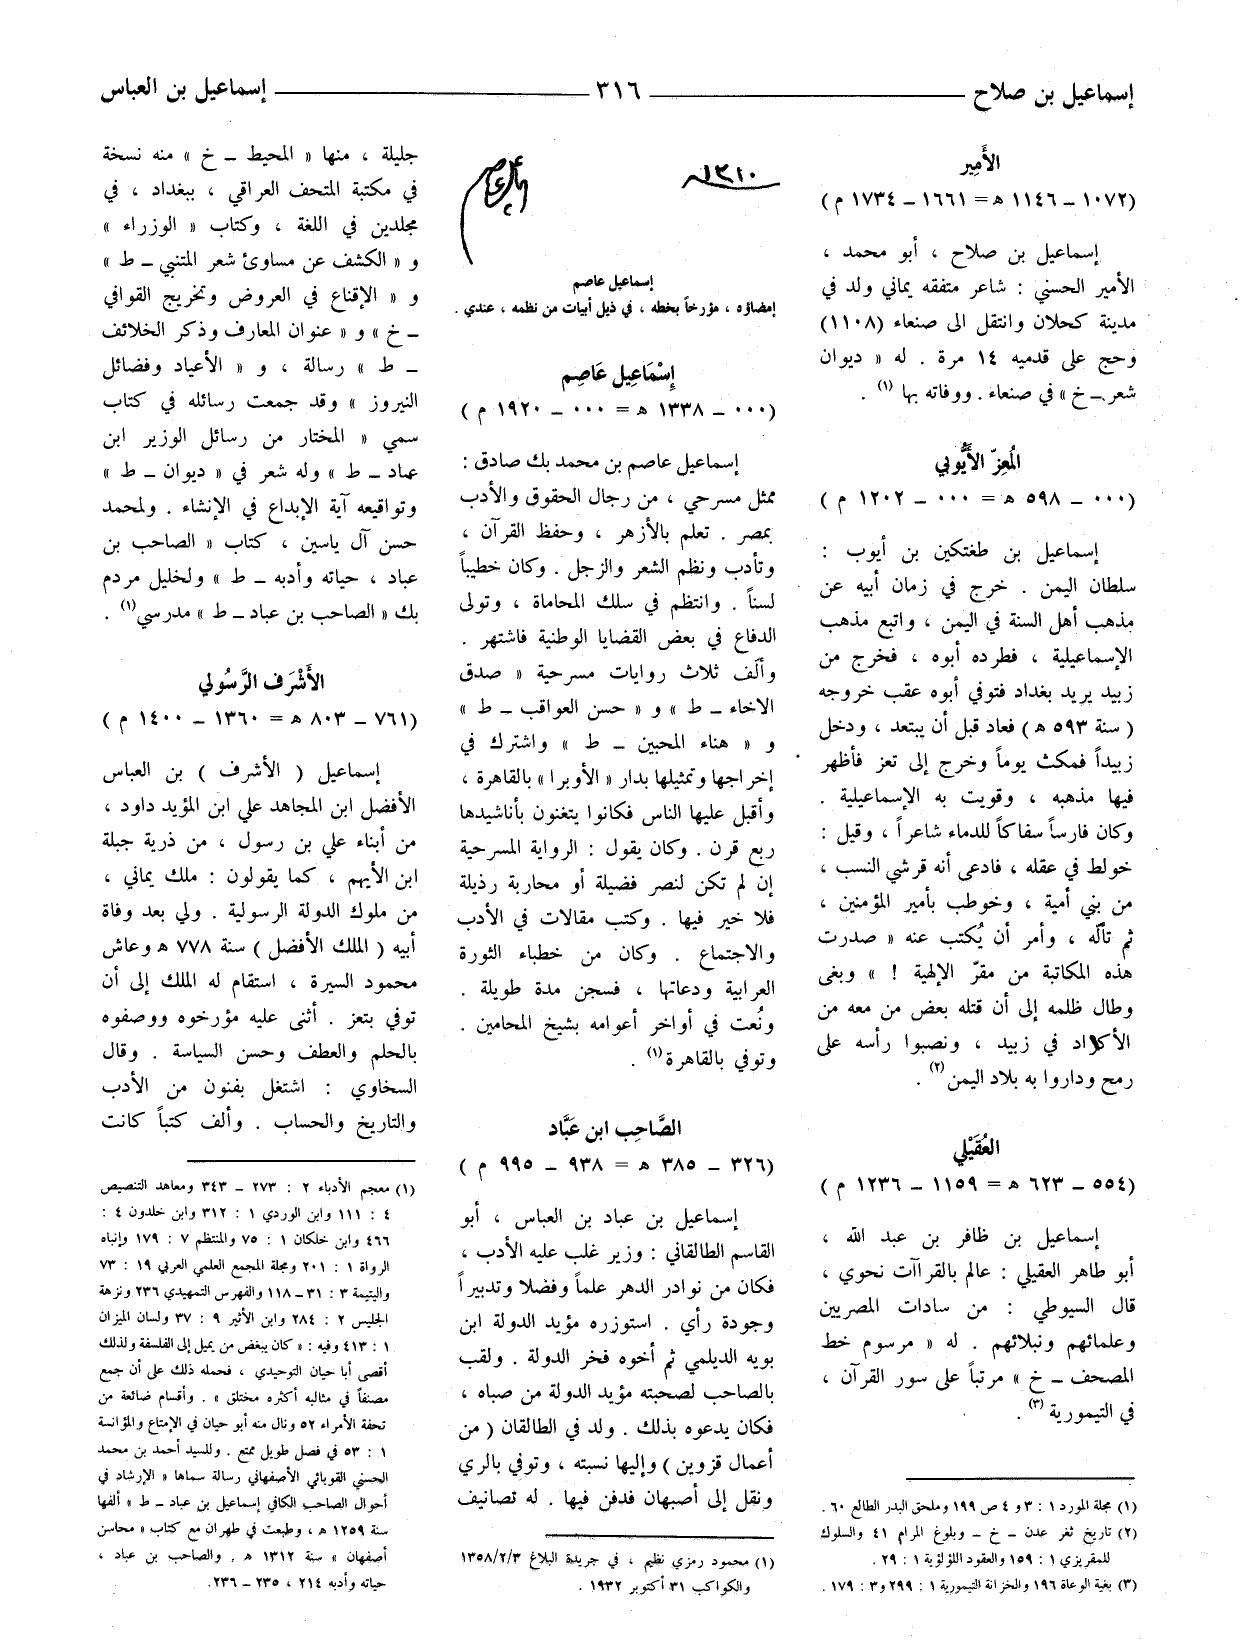 إسماعيل بن صلاح ــــــ ٣١٦ ــــــ إسماعيل بن العباس
الأَمِير
(١٠٧٢ ــ ١١٤٦ ه = ١٦٦١ ــ ١٧٣٤ م)
إسماعيل بن صلاح ، أبو محمد ،
الأمير الحسني : شاعر متفقه يماني ولد في
مدينة كحلان وانتقل الى صنعاء (١١٠٨)
وحج على قدميه ١٤ مرة . له « ديوان
شعر ــ خ » في صنعاء . ووفاته بها (١) .
المُعِزّ الأَيُّوبي
(٠٠٠ ــ ٥٩٨ ه = ٠٠٠ ــ ١٢٠٢ م)
إسماعيل بن طغتكين بن أيوب :
سلطان اليمن . خرج في زمان أبيه عن
مذهب أهل السنة في اليمن ، واتبع مذهب
الإسماعيلية ، فطرده أبوه ، فخرج من
زبيد يريد بغداد فتوفي أبوه عقب خروجه
( سنة ٥٩٣ ه ) فعاد قبل أن يبتعد ، ودخل
زبيداً فمكث يوماً وخرج إلى تعز فأظهر
فيها مذهبه ، وقويت به الإسماعيلية .
وكان فارساً سفاكاً للدماء شاعراً ، وقيل :
خولط في عقله ، فادعى أنه قرشي النسب ،
من بني أمية ، وخوطب بأمير المؤمنين ،
ثم تألّه ، وأمر أن يُكتب عنه « صدرت
هذه المكاتبة من مقرّ الإلهية ! » وبغى
وطال ظلمه إلى أن قتله بعض من معه من
الأكراد في زبيد ، ونصبوا رأسه على
رمح وداروا به بلاد اليمن (٢) .
العُقَيْلي
(٥٥٤ ــ ٦٢٣ ه = ١١٥٩ ــ ١٢٣٦ م)
إسماعيل بن ظافر بن عبد الله ،
أبو طاهر العقيلي : عالم بالقراآت نحوي ،
قال السيوطي : من سادات المصريين
وعلمائهم ونبلائهم . له « مرسوم خط
المصحف ــ خ » مرتباً على سور القرآن ،
في التيمورية (٣) .
(١) مجلة المورد ١ : ٣ و ٤ ص ١٩٩ وملحق البدر الطالع ٦٠ .
(٢) تاريخ ثغر عدن ــ خ ــ وبلوغ المرام ٤١ والسلوك
للمقريزي ١ : ١٥٩ والعقود اللؤلؤية ١ : ٢٩ .
(٣) بغية الوعاة ١٩٦ والخزانة التيمورية ١ : ٢٩٩ و ٣ : ١٧٩ .
١٣١٠
إسماعيل عاصم
إمضاؤه ، مؤرخاً بخطه ، في ذيل أبيات من نظمه ، عندي .
إِسْمَاعِيل عَاصِم
(٠٠٠ ــ ١٣٣٨ ه = ٠٠٠ ــ ١٩٢٠ م )
إسماعيل عاصم بن محمد بك صادق :
ممثل مسرحي ، من رجال الحقوق والأدب
بمصر . تعلم بالأزهر ، وحفظ القرآن ،
وتأدب ونظم الشعر والزجل . وكان خطيباً
لسناً . وانتظم في سلك المحاماة ، وتولى
الدفاع في بعض القضايا الوطنية فاشتهر .
وألَف ثلاث روايات مسرحية « صدق
الاخاء ــ ط » و « حسن العواقب ــ ط »
و « هناء المحبين ــ ط » واشترك في
إخراجها وتمثيلها بدار « الأوبرا » بالقاهرة ،
وأقبل عليها الناس فكانوا يتغنون بأناشيدها
ربع قرن . وكان يقول : الرواية المسرحية
إن لم تكن لنصر فضيلة أو محاربة رذيلة
فلا خير فيها . وكتب مقالات في الأدب
والاجتماع . وكان من خطباء الثورة
العرابية ودعاتها ، فسجن مدة طويلة .
ونُعت في أواخر أعوامه بشيخ المحامين .
وتوفي بالقاهرة (١) .
الصَّاحِب ابن عَبَّاد
(٣٢٦ ــ ٣٨٥ ه = ٩٣٨ ــ ٩٩٥ م )
إسماعيل بن عباد بن العباس ، أبو
القاسم الطالقاني : وزير غلب عليه الأدب ،
فكان من نوادر الدهر علماً وفضلا وتدبيراً
وجودة رأي . استوزره مؤيد الدولة ابن
بويه الديلمي ثم أخوه فخر الدولة . ولقب
بالصاحب لصحبته مؤيد الدولة من صباه ،
فكان يدعوه بذلك . ولد في الطالقان ( من
أعمال قزوين ) وإليها نسبته ، وتوفي بالري
ونقل إلى أصبهان فدفن فيها . له تصانيف
(١) محمود رمزي نظيم ، في جريدة البلاغ ١٣٥٨/٢/٣
والكواكب ٣١ أكتوبر ١٩٣٢ .
جليلة ، منها « المحيط ــ خ » منه نسخة
في مكتبة المتحف العراقي ، ببغداد ، في
مجلدين في اللغة ، وكتاب « الوزراء »
و « الكشف عن مساوئ شعر المتنبي ــ ط »
و « الإقناع في العروض وتخريج القوافي
ــ خ » و « عنوان المعارف وذكر الخلائف
ــ ط » رسالة ، و « الأعياد وفضائل
النيروز » وقد جمعت رسائله في كتاب
سمي « المختار من رسائل الوزير ابن
عماد ــ ط » وله شعر في « ديوان ــ ط »
وتواقيعه آية الإبداع في الإنشاء . ولمحمد
حسن آل ياسين ، كتاب « الصاحب بن
عباد ، حياته وأدبه ــ ط » ولخليل مردم
بك « الصاحب بن عباد ــ ط » مدرسي (١) .
الأَشْرَف الرَّسُولي
(٧٦١ ــ ٨٠٣ ه = ١٣٦٠ ــ ١٤٠٠ م )
إسماعيل ( الأشرف ) بن العباس
الأفضل ابن المجاهد علي ابن المؤيد داود ،
من أبناء علي بن رسول ، من ذرية جبلة
ابن الأيهم ، كما يقولون : ملك يماني ،
من ملوك الدولة الرسولية . ولي بعد وفاة
أبيه ( الملك الأفضل ) سنة ٧٧٨ ه وعاش
محمود السيرة ، استقام له الملك إلى أن
توفي بتعز . أثنى عليه مؤرخوه ووصفوه
بالحلم والعطف وحسن السياسة . وقال
السخاوي : اشتغل بفنون من الأدب
والتاريخ والحساب . وألف كتباً كانت
(١) معجم الأدباء ٢ : ٢٧٣ ــ ٣٤٣ ومعاهد التنصيص
٤ : ١١١ وابن الوردي ١ : ٣١٢ وابن خلدون ٤ :
٤٦٦ وابن خلكان ١ : ٧٥ والمنتظم ٧ : ١٧٩ وإنباه
الرواة ١ : ٢٠١ ومجلة المجمع العلمي العربي ١٩ : ٧٣
واليتيمة ٣ : ٣١ ــ ١١٨ والفهرس التمهيدي ٢٣٦ ونزهة
الجليس ٢ : ٢٨٤ وابن الأثير ٩ : ٣٧ ولسان الميزان
١ : ٤١٣ وفيه : « كان يبغض من يميل إلى الفلسفة ولذلك
أقصى أبا حيان التوحيدي ، فحمله ذلك على أن جمع
مصنفاً في مثالبه أكثره مختلق » . وأقسام ضائعة من
تحفة الأمراء ٥٢ ونال منه أبو حيان في الإمتاع والمؤانسة
١ : ٥٣ في فصل طويل ممتع . وللسيد أحمد بن محمد
الحسني القوبائي الأصفهاني رسالة سماها « الإرشاد في
أحوال الصاحب الكافي إسماعيل بن عباد ــ ط » ألفها
سنة ١٢٥٩ ه ، وطبعت في طهران مع كتاب « محاسن
أصفهان » سنة ١٣١٢ ه . والصاحب بن عباد ،
حياته وأدبه ٢١٤ ، ٢٣٥ ــ ٢٣٦ .